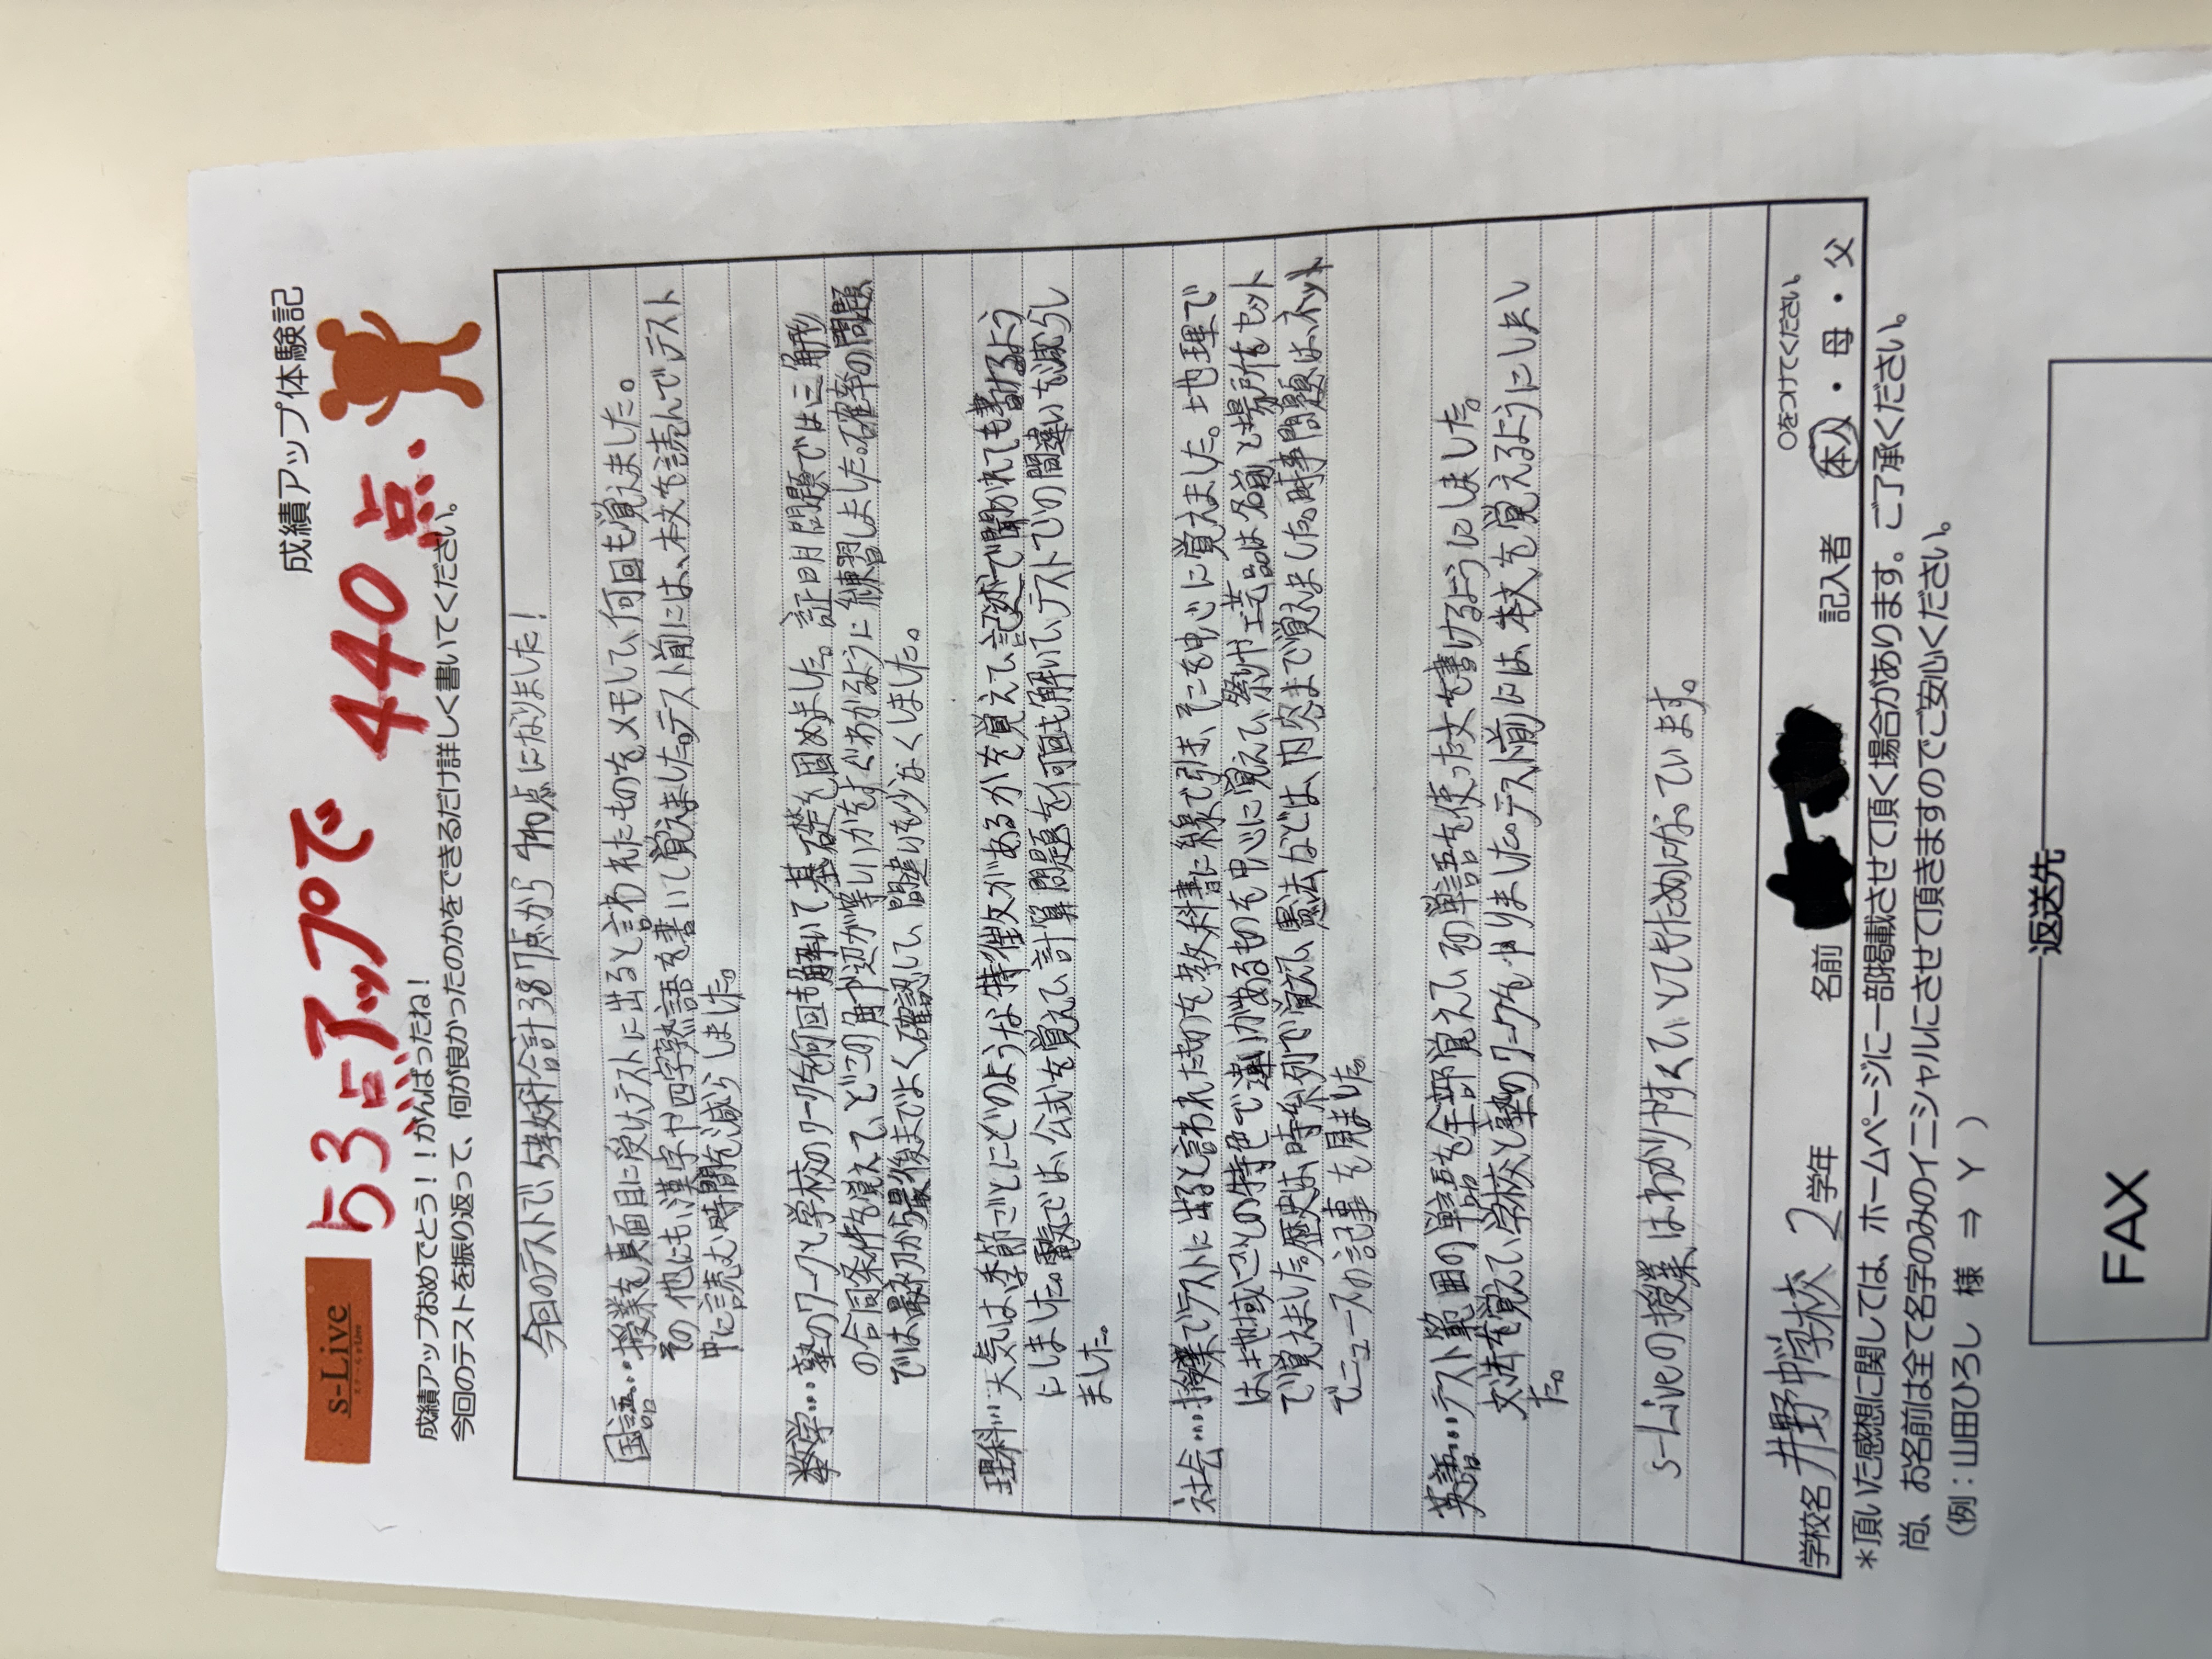 成績アップ体験記
s-Live
53点アップで 440点、
成績アップおめでとう！！がんばったね！
今回のテストを振り返って、何が良かったのかをできるだけ詳しく書いてください。
今回のテストで、5教科合計387点から440点になりました！
国語…授業を真面目に受け、テストに出ると言われたものをメモして、何回も覚えました。
その他にも、漢字や四字熟語を書いて覚えました。テスト前には、本文を読んでテスト
中に読む時間を減らしました。
数学…塾のワークと学校のワークを何回も解いて基礎を固めました。証明問題では三角形
の合同条件を覚えて、どこの角や辺が等しいかをすぐわかるように練習しました。確率の問題
では最初から最後までよく確認して、間違いを少なくしました。
理科…天気は、季節ごとにどのような特徴があるかを覚えて、記述で聞かれても書けるよう
にしました。電気では、公式を覚えて、計算問題を何回も解いて、テストでの間違いを減らし
ました。
社会…授業でテストに出ると言われたものを教科書に線で引き、そこを中心に覚えました。地理で
は、地域ごとの特色で違いがあるものを中心に覚えて、祭りや工芸品は名前と場所をセット
で覚えました。歴史は、時系列で覚えて、憲法などは、内容まで覚えました。時事問題は、ネット
でニュースの記事を見ました。
英語…テスト範囲の単語を全部覚えて、その単語を使った文を書けるようにしました。
文法を覚えて、学校と塾のワークをやりました。テスト前には、本文を覚えるようにしまし
た。
s-Liveの授業はわかりやすくて、とてもためになっています。
学校名 井野中学校 2学年 名前 記入者 本人・母・父
○をつけてください。
＊頂いた感想に関しては、ホームページに一部掲載させて頂く場合があります。ご了承ください。
尚、お名前は全て名字のみのイニシャルにさせて頂きますのでご安心ください。
（例：山田ひろし 様 ⇒ Y ）
返送先
FAX